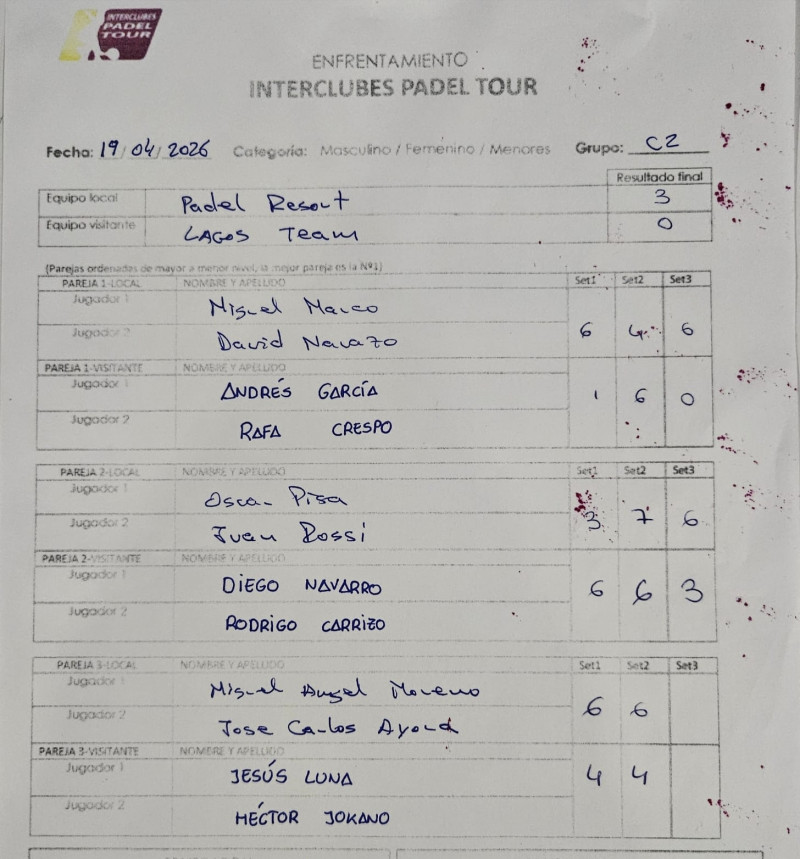 INTERCLUBES
PADEL
TOUR
ENFRENTAMIENTO
INTERCLUBES PADEL TOUR
Fecha: 19/04/2026 Categoría: Masculino / Femenino / Menores Grupo: C2
Resultado final
Equipo local Padel Resort 3
Equipo visitante LAGOS TEAM 0
(Parejas ordenadas de mayor a menor nivel, la mejor pareja es la Nº1)
PAREJA 1-LOCAL NOMBRE Y APELLIDO Set1 Set2 Set3
Jugador 1 Miguel Marco
Jugador 2 David Navazo 6 4 6
PAREJA 1-VISITANTE NOMBRE Y APELLIDO
Jugador 1 ANDRÉS GARCÍA 1 6 0
Jugador 2 RAFA CRESPO
PAREJA 2-LOCAL NOMBRE Y APELLIDO Set1 Set2 Set3
Jugador 1 Oscar Pisa
Jugador 2 Juan Rossi 3 7 6
PAREJA 2-VISITANTE NOMBRE Y APELLIDO
Jugador 1 DIEGO NAVARRO 6 6 3
Jugador 2 RODRIGO CARRIZO
PAREJA 3-LOCAL NOMBRE Y APELLIDO Set1 Set2 Set3
Jugador 1 Miguel Angel Moreno
Jugador 2 Jose Carlos 6 6
PAREJA 3-VISITANTE NOMBRE Y APELLIDO
Jugador 1 JESÚS LUNA 4 4
Jugador 2 HÉCTOR JOKANO